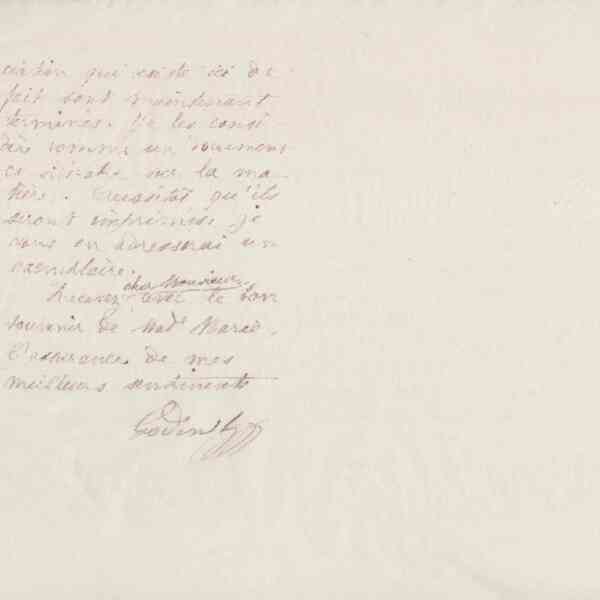 ciation qui existe ici de
fait sont maintenant
terminés. Je les consi
dère comme un document
sur la ma
tière. Aussitôt qu'ils
seront imprimés, je
vous en adresserai un
exemplaire.
Recevez cher Monsieur, avec le bon
souvenir de Mad. Marie,
l'assurance de mes
meilleurs sentiments
Godin